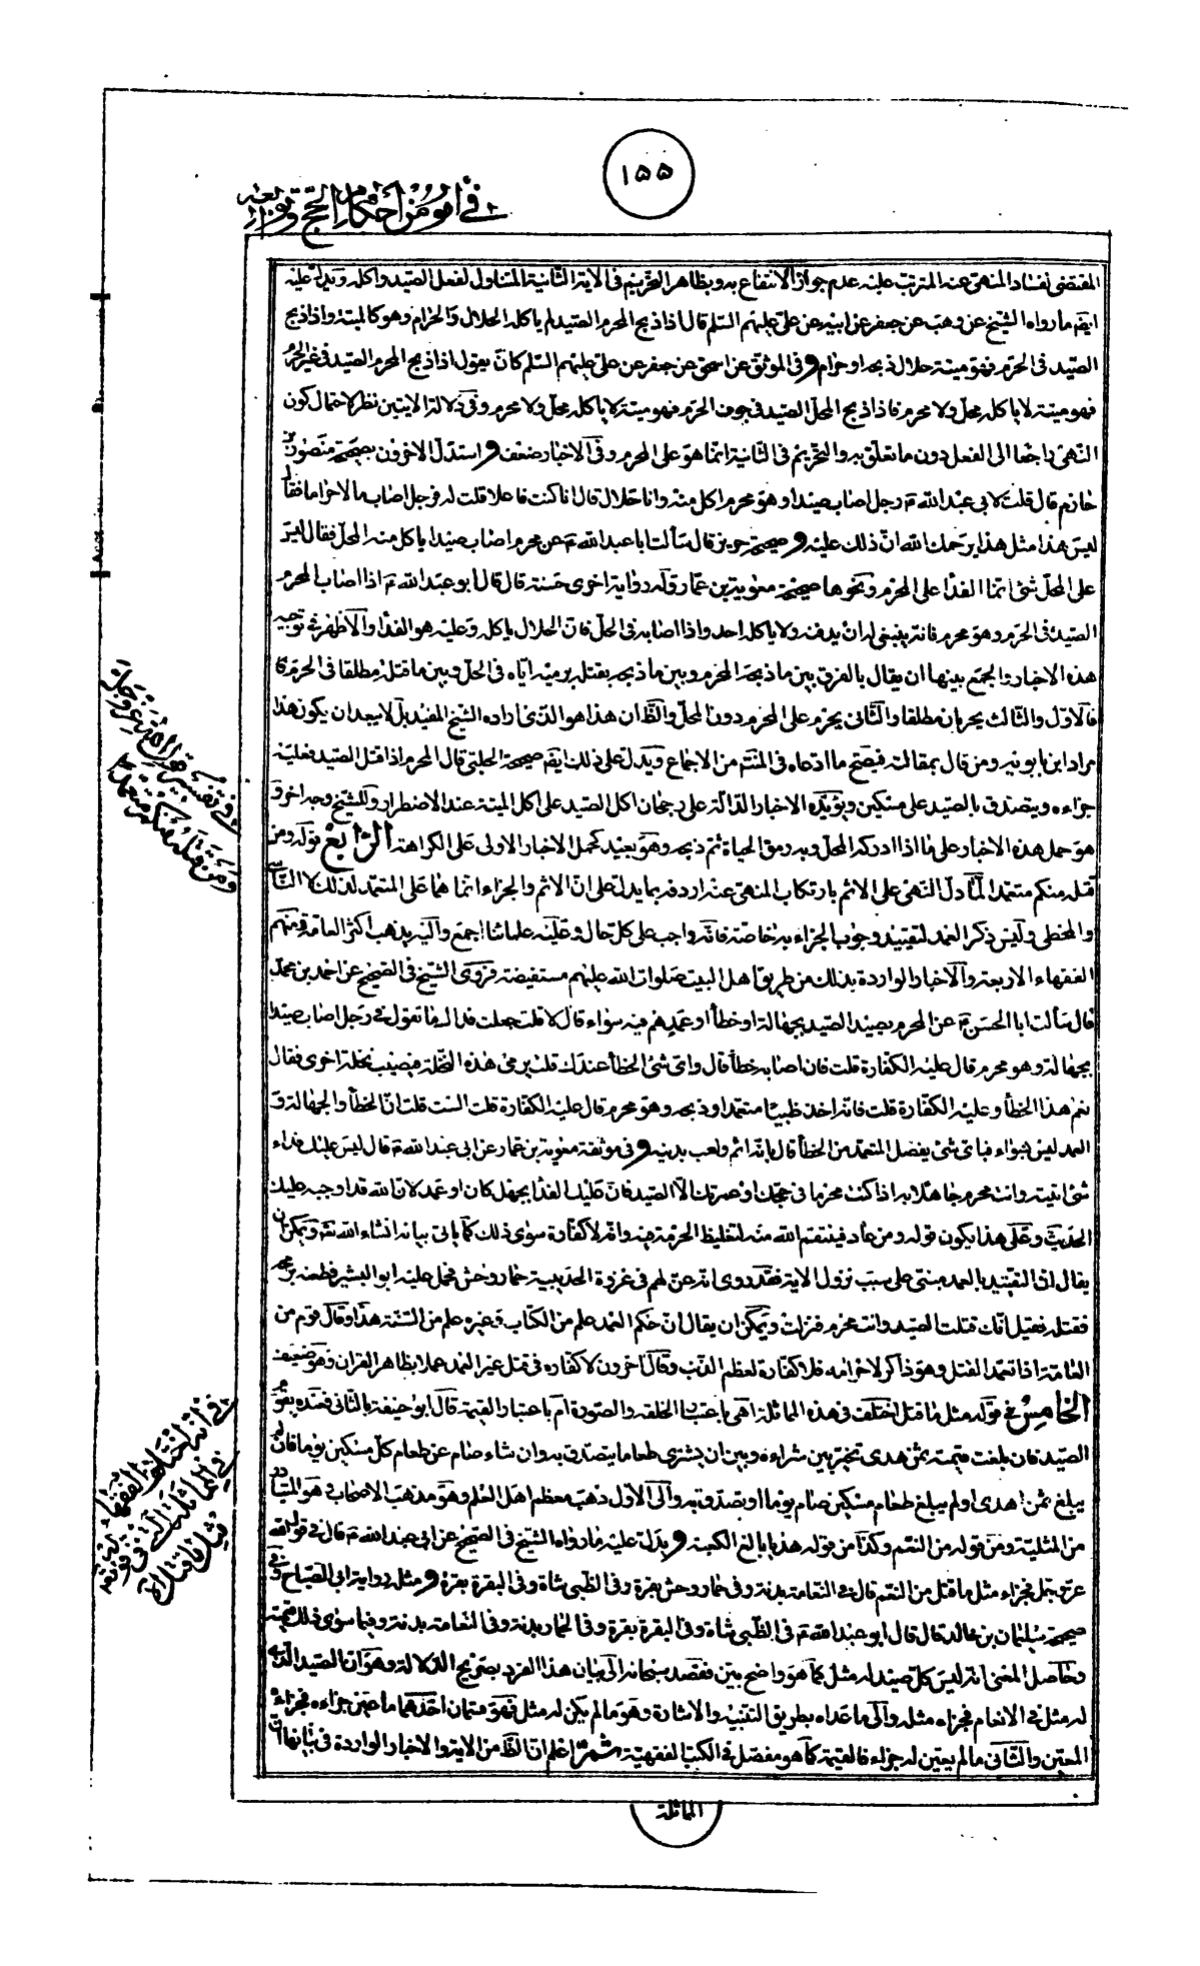 ١٥٥
في أمور من أحكام الحج وتوابعه
المقتضى لفساد المنهى عنه المترتب عليه عدم جواز الانتفاع به وبظاهر التحريم في الآية الثانية المتناول لفعل الصيد واكله ويدل عليه
ايضا ما رواه الشيخ عن وهب عن جعفر عن ابيه عن على عليهم السلم قال اذا ذبح المحرم الصيد لم ياكله الحلال والحرام وهو كالميتة واذا ذبح
الصيد في الحرم فهو ميتة حلال ذبحه او حرام وفي الموثق عن اسحق عن جعفر عن على عليهم السلم كان يقول اذا ذبح المحرم الصيد في غير الحرم
فهو ميتة لا ياكله محل ولا محرم فاذا ذبح المحل الصيد في جوف الحرم فهو ميتة لا ياكله محل ولا محرم وفي دلالة الايتين نظر لاحتمال كون
النهى راجعا الى الفعل دون ما تعلق به والتحريم في الثانية انما هو على المحرم وفي الاخبار ضعف واستدل الاخرون بصحيحة منصور بن
حازم قال قلت لابي عبد الله ع رجل اصاب صيدا وهو محرم اكل منه وانا حلال قال انا كنت فاعلا قلت له فرجل اصاب مالا حراما فقال
ليس هذا مثل هذا يرحمك الله ان ذلك عليه وصحيحة حريز قال سألت ابا عبد الله ع عن محرم اصاب صيدا ياكل منه المحل فقال ليس
على المحل شئ انما الفدا على المحرم ونحوها صحيحة معوية بن عمار وله رواية اخرى حسنة قال قال ابو عبد الله ع اذا اصاب المحرم
الصيد في الحرم وهو محرم فانه ينبغى له ان يدفنه ولا ياكله احد واذا اصابه في الحل فان الحلال ياكله وعليه هو الفدا والاظهر في توجيه
هذه الاخبار والجمع بينها ان يقال بالفرق بين ما ذبحه المحرم وبين ما ذبحه بقتله برميه اياه في الحل وبين ما قتله مطلقا في الحرم
فالاول والثالث يحرمان مطلقا والثانى يحرم على المحرم دون المحل والظ ان هذا هو الذى اراده الشيخ المفيد بل لا يبعد ان يكون هذا
مراد ابن بابويه ومن قال بمقالته فيصح ما ادعاه في المنتهى من الاجماع ويدل على ذلك ايضا صحيحة الحلبى قال المحرم اذا قتل الصيد فعليه
جزاءه ويتصدق بالصيد على مسكين ويؤيده الاخبار الدالة على رجحان اكل الصيد على اكل الميتة عند الاضطرار وللشيخ وجه اخر و
هو حمل هذه الاخبار على ما اذا ادركه المحل وبه رمق الحياة ثم ذبحه وهو بعيد كحمل الاخبار الاولى على الكراهة الرابع قوله ومن
قتله منكم متعمدا لما دل النهى على الاثم بارتكاب المنهى عنه اردفه بما يدل على ان الاثم والجزاء انما هما على المتعمد لذلك لا الناسى
والمخطى وليس ذكر العمد لتقييد وجوب الجزاء به خاصة فانه واجب على كل حال وعليه علمائنا اجمع واليه يذهب اكثر العامة ومنهم
الفقهاء الاربعة والاخبار الواردة بذلك من طريق اهل البيت صلوات الله عليهم مستفيضة فروى الشيخ في الصحيح عن احمد بن محمد
قال سألت ابا الحسن ع عن المحرم يصيد الصيد بجهالة او خطأ او عمد اهم فيه سواء قال لا قلت جعلت فداك ما تقول في رجل اصاب صيدا
بجهالة وهو محرم قال عليه الكفارة قلت فان اصابه خطأ قال واى شئ الخطأ عندك قلت يرمى هذه النخلة فيصيب نخلة اخرى فقال
نعم هذا الخطأ وعليه الكفارة قلت فانه اخذ ظبيا متعمدا وذبحه وهو محرم قال عليه الكفارة قلت الست قلت ان الخطأ والجهالة و
العمد ليس بسواء فباى شئ يفضل المتعمد من الخطأ قال بانه اثم ولعب بدينه وفي موثقة معوية بن عمار عن ابى عبد الله ع قال ليس عليك فداء
شئ اتيته وانت محرم جاهلا به اذا كنت محرما في حجك او عمرتك الا الصيد فان عليك الفدا بجهل كان او عمد لان الله قد اوجبه عليك
الحديث وعلى هذا يكون قوله ومن عاد فينتقم الله منه لتغليظ الحرمة فيه وانه لا كفارة سوى ذلك كما ياتى بيانه انشاء الله تعالى ويمكن ان
يقال ان التقييد بالعمد مبنى على سبب نزول الاية فقد روى انه عن لهم في غزوة الحديبية حمار وحش فحمل عليه ابو اليسر فطعنه برمحه
فقتله فقيل انك قتلت الصيد وانت محرم فنزلت ويمكن ان يقال ان حكم العمد علم من الكتاب وغيره علم من السنة هذا وقال قوم من
العامة اذا تعمد القتل وهو ذاكر لاحرامه فلا كفارة لعظم الذنب وقال اخرون لا كفاره في قتل غير العمد عملا بظاهر القران وهو ضعيف
الخامس في قوله مثل ما قتل اختلف في هذه المماثلة اهى باعتبار الخلقة والصورة ام باعتبار القيمة قال ابو حنيفة بالثانى فعنده يقوم
الصيد فان بلغت قيمته ثمن هدى تخير بين شراءه وبين ان يشترى طعاما يتصدق به وان شاء صام عن طعام كل مسكين يوما فان لم
يبلغ ثمن اهدى او لم يبلغ طعام مسكين صام يوما او تصدق به والى الاول ذهب معظم اهل العلم وهو مذهب الاصحاب وهو المتبادر
من المثلية ومن قوله من النعم وكذا من قوله هديا بالغ الكعبة ويدل عليه ما رواه الشيخ في الصحيح عن ابى عبد الله ع قال في قول الله
عز وجل فجزاء مثل ما قتل من النعم قال في النعامة بدنة وفي حمار وحش بقرة وفي الظبى شاة وفي البقرة بقرة ومثل رواية ابى الصباح وفي
صحيحة سليمان بن خالد قال قال ابو عبد الله ع في الظبى شاة وفي البقرة بقرة وفي الحمار بدنة وفي النعامة بدنة وفيما سوى ذلك قيمته
وحاصل المعنى انه ليس كل صيد له مثل كما هو واضح بين فقصد سبحانه الى بيان هذا الفرد بصريح الدلالة وهو ان الصيد الذى
له مثل في الانعام فجزاءه مثله والى ما عداه بطريق التنبيه والاشارة وهو ما لم يكن له مثل فهو قسمان احدهما ما تعين جزاءه فجزاءه
المعين والثانى ما لم يعين له جزاء فالقيمة كما هو مفصل في الكتب الفقهية ثم اعلم ان الظ من الاية والاخبار الواردة في بيانها ان
المماثلة
في تفسير قوله تعالى عز وجل
ومن قتله منكم متعمدا
في انه اختلف الفقهاء
في المماثلة التي في قوله
مثل ما قتل